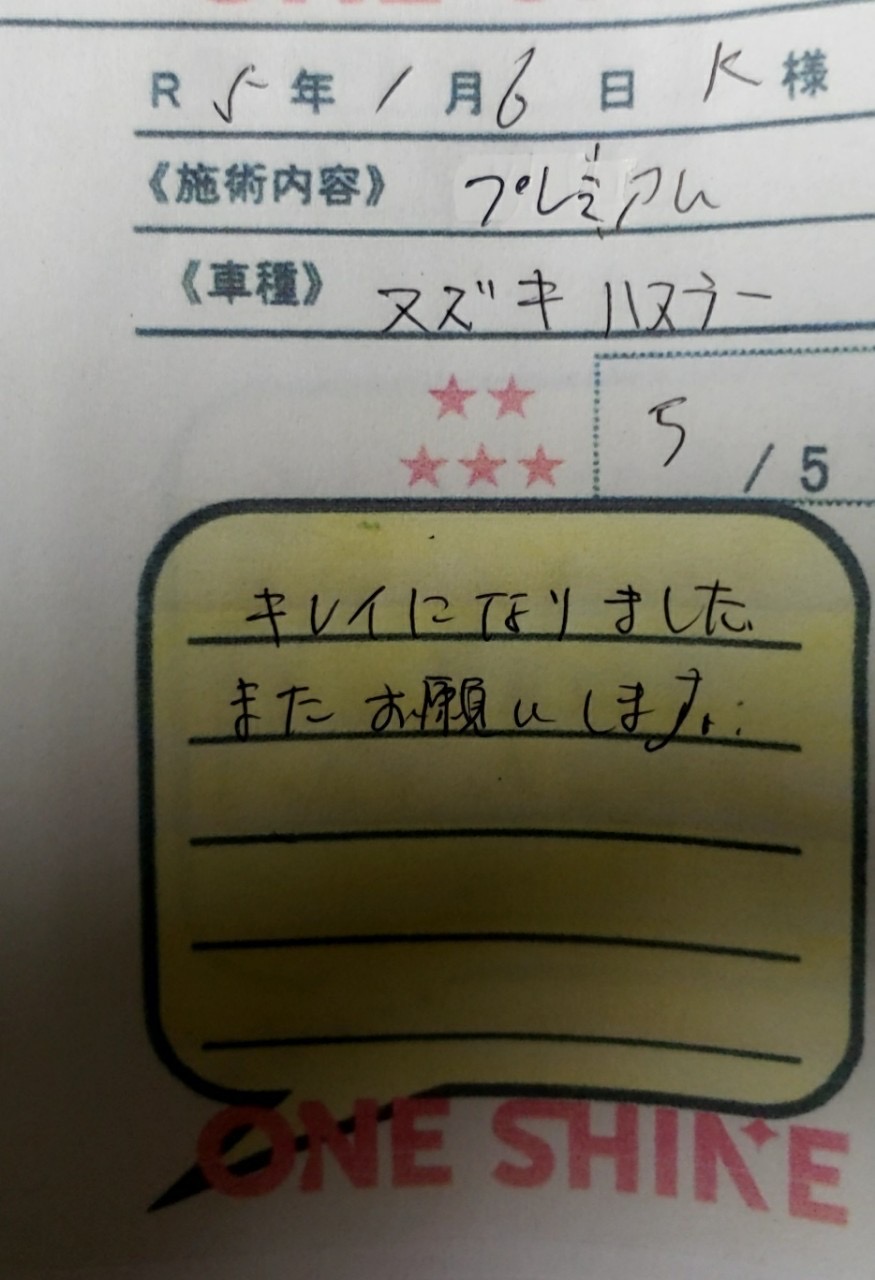 R 5年 1月6日 K様
《施術内容》 プレミアム
《車種》 スズキ ハスラー
★★
★★★
5 / 5
キレイになりました
またお願いします。
ONE SHINE